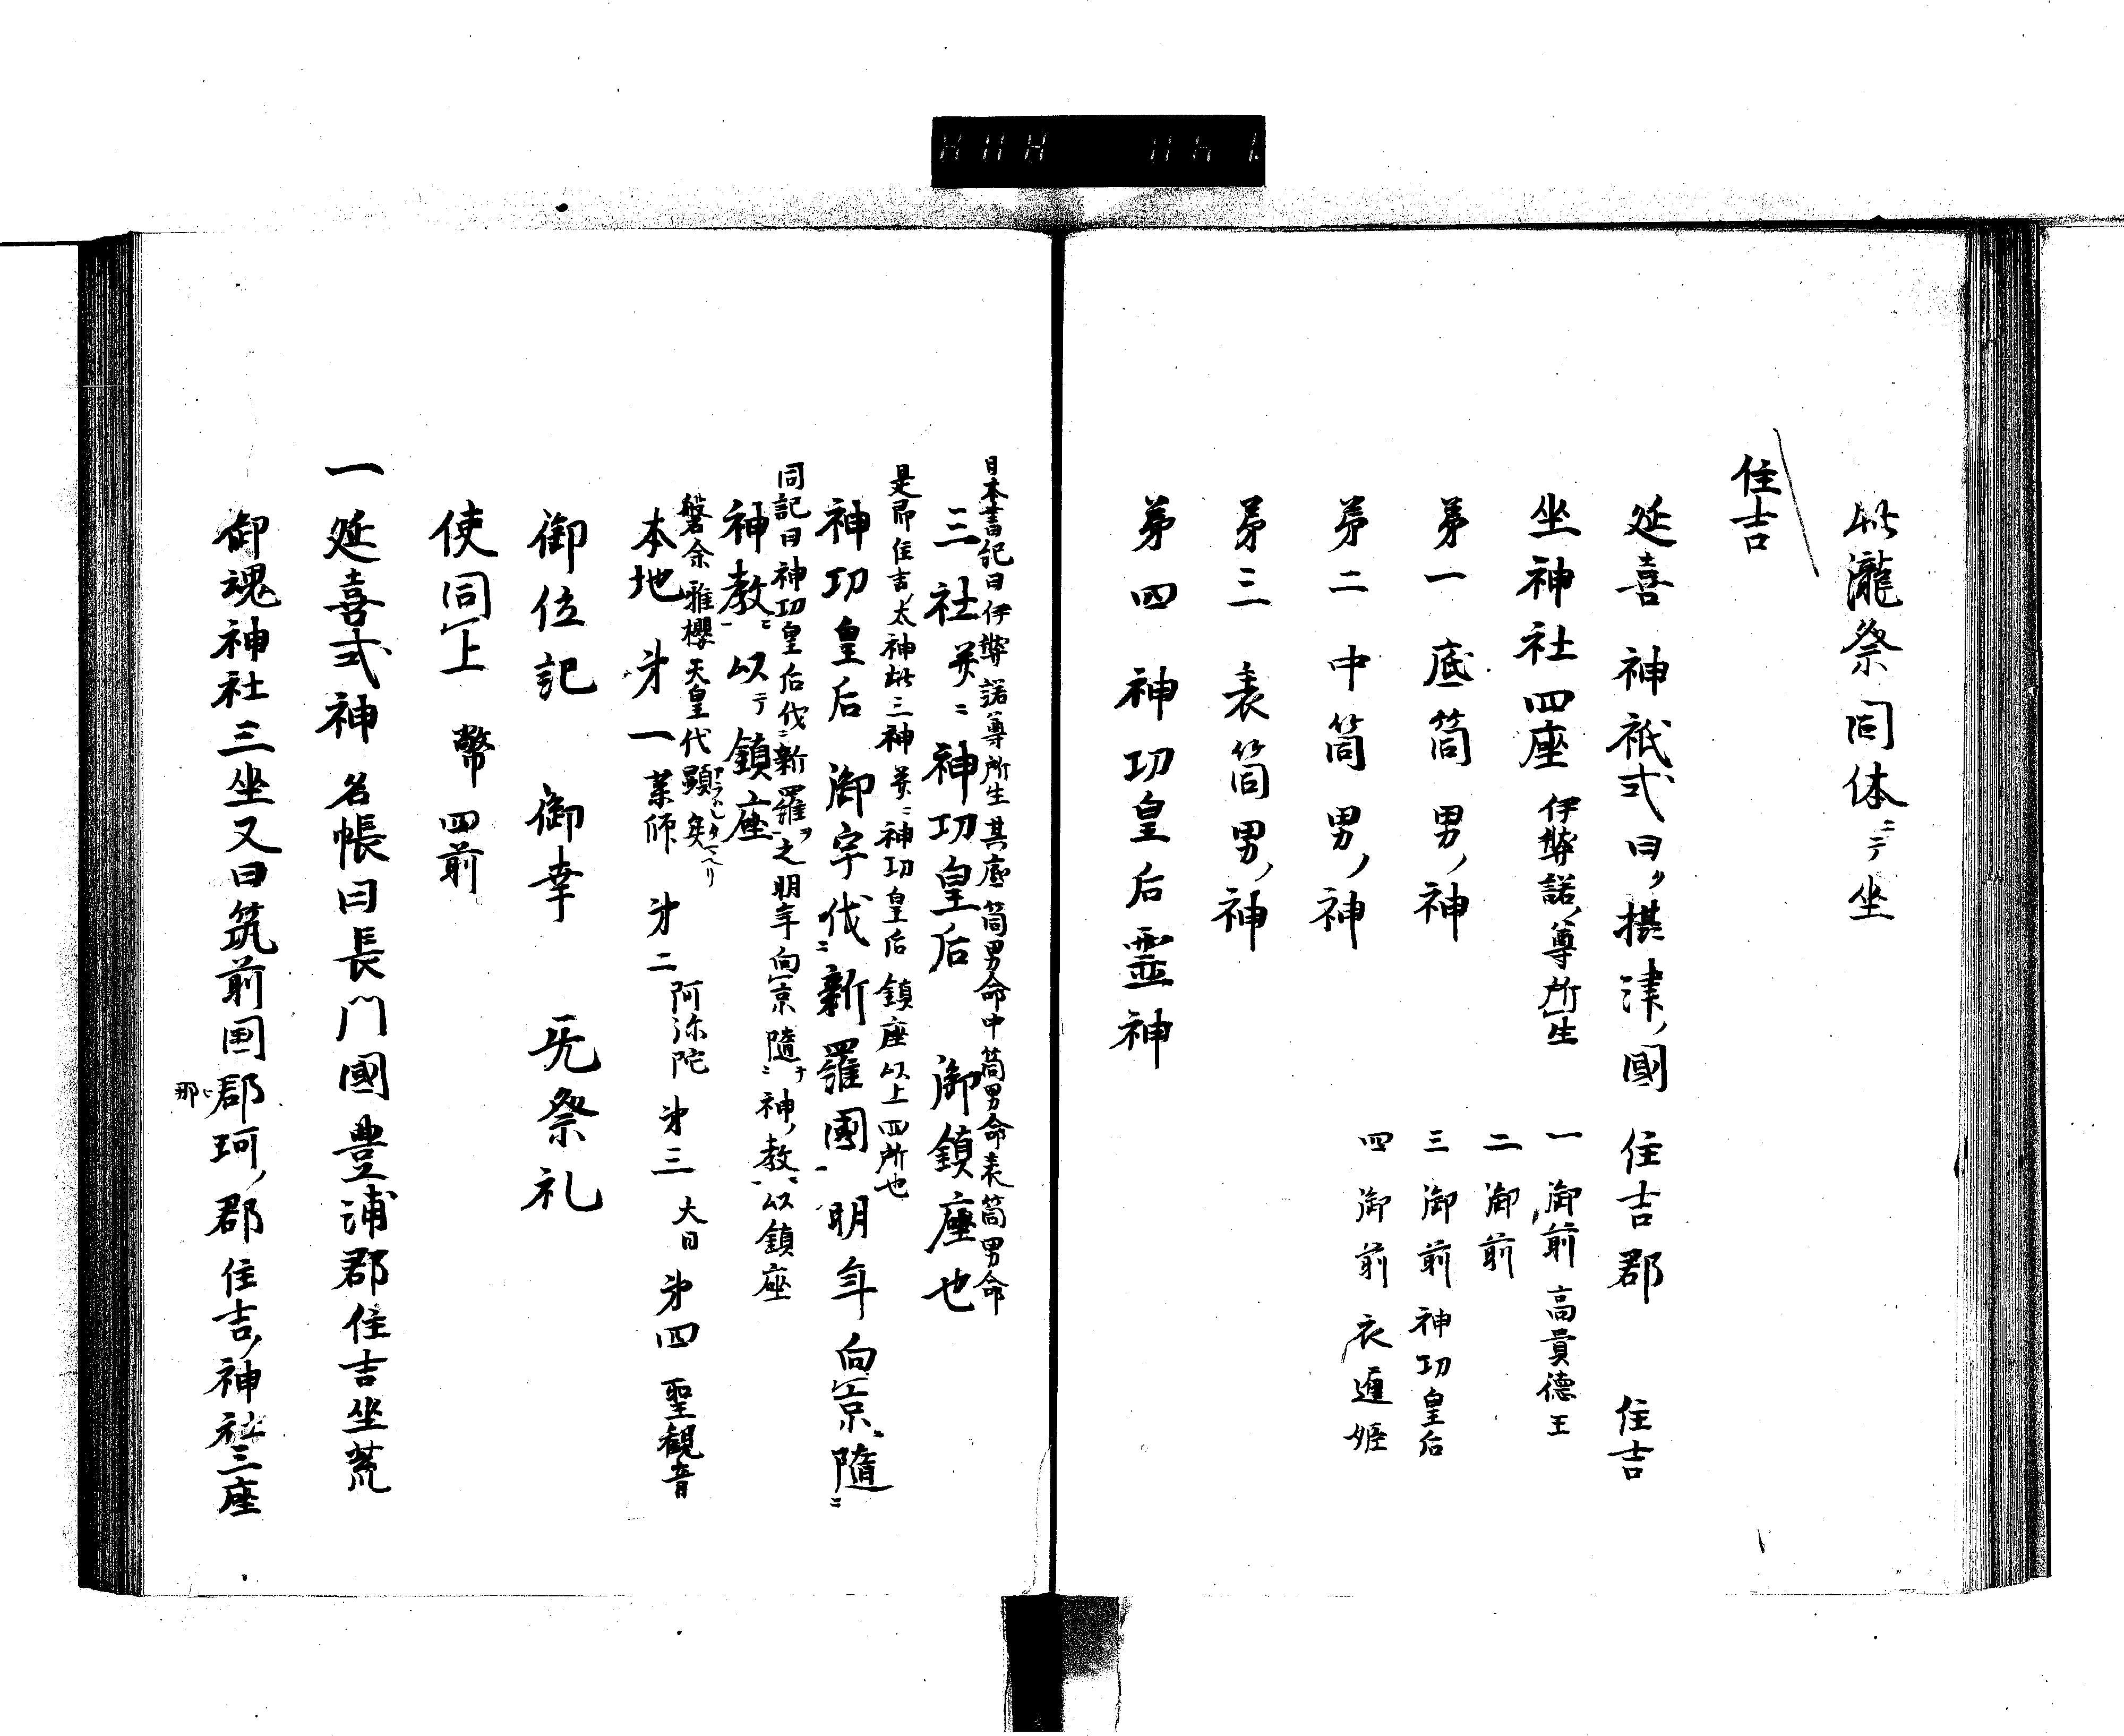 此瀧祭同体ニテ坐
住吉
延喜神祇式曰ク摂津ノ國住吉郡住吉
坐神社四座伊弊諾ノ尊所生
一御前高貴徳王
二御前
三御前神功皇后
四御前衣通姫
第一底筒男ノ神
第二中筒男ノ神
第三表筒男ノ神
第四神功皇后霊神
日本書紀曰伊弊諾尊所生其底筒男命中筒男命表筒男命
三社并ニ神功皇后御鎮座也
是即住吉ノ太神此三神并ニ神功皇后鎮座以上四所也
神功皇后御宇伐ニ新羅國一明年向京隨ニ
同記曰神功皇后伐ニ新羅ヲ一之明年向京隨ニ于神ノ教ニ一以鎮座
神教ニ一以テ鎮座
磐余雅櫻天皇代顕矣
本地㐧一薬師㐧二阿弥陀㐧三大日㐧四聖観音
御位記御幸旡祭礼
使同上幣四前
一延喜式神名帳曰長門國豊浦郡住吉坐荒
御魂神社三坐又曰筑前国郡珂ノ郡住吉ノ神社三座
那